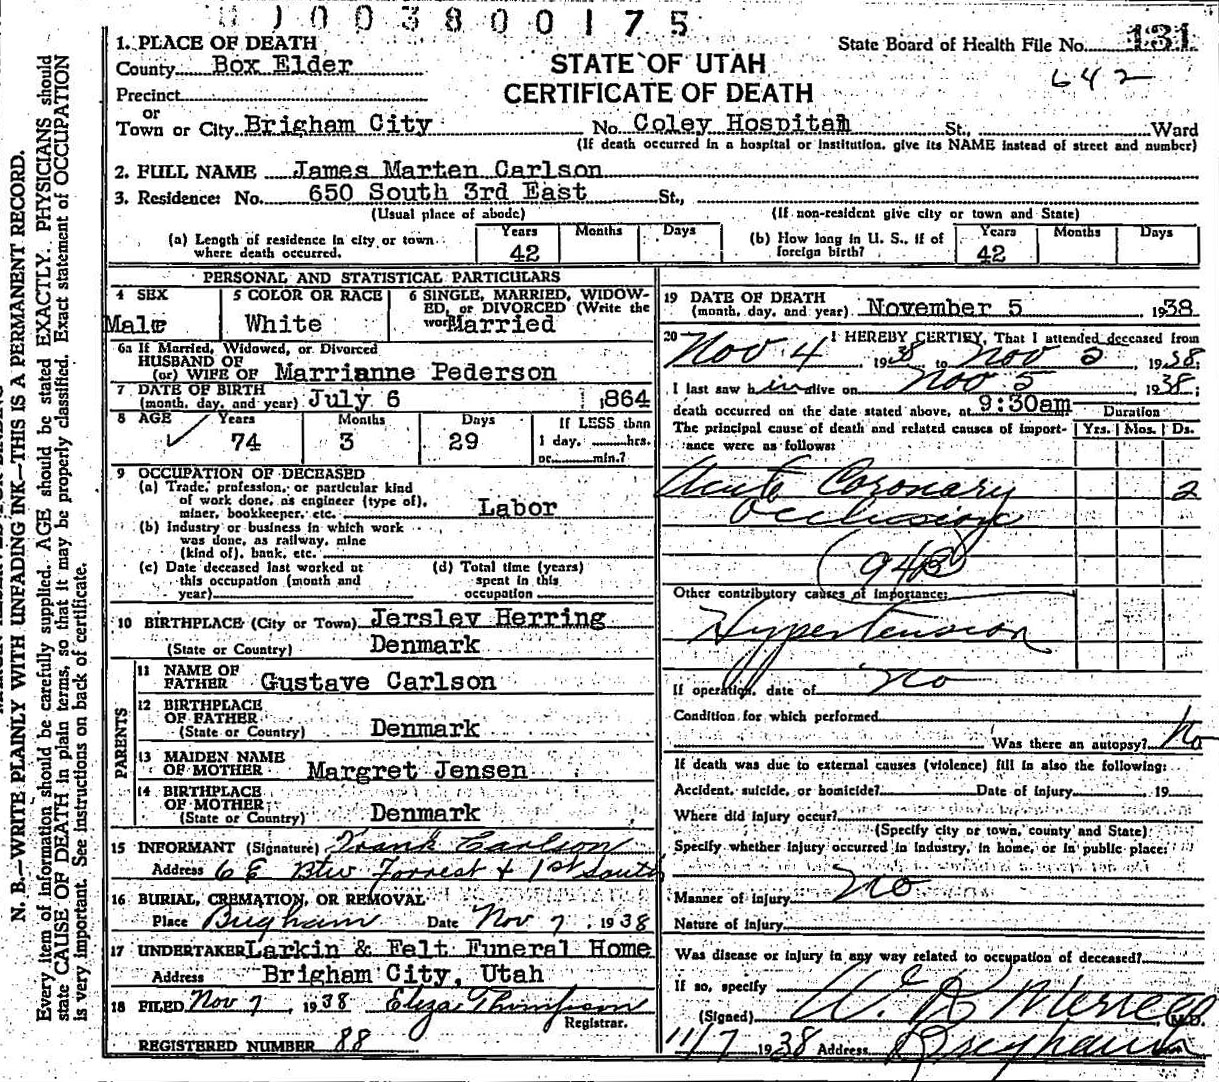 003800175
1. PLACE OF DEATH
State Board of Health File No. 131
County Box Elder
STATE OF UTAH
642
Precinct
CERTIFICATE OF DEATH
or
Town or City Brigham City No. Coley Hospital St., Ward
(If death occurred in a hospital or institution, give its NAME instead of street and number)
2. FULL NAME James Marten Carlson
3. Residence: No. 650 South 3rd East St.,
(Usual place of abode) (If non-resident give city or town and State)
(a) Length of residence in city or town where death occurred. Years 42 Months Days
(b) How long in U. S., if of foreign birth? Years 42 Months Days
PERSONAL AND STATISTICAL PARTICULARS
4 SEX Male
5 COLOR OR RACE White
6 SINGLE, MARRIED, WIDOW-
ED, or DIVORCED (Write the
word) Married
6a If Married, Widowed, or Divorced
HUSBAND OF
(or) WIFE OF Marrianne Pederson
7 DATE OF BIRTH
(month, day, and year) July 6 1864
8 AGE Years 74 Months 3 Days 29
If LESS than
1 day, hrs.
or min.?
9 OCCUPATION OF DECEASED
(a) Trade, profession, or particular kind
of work done, as engineer (type of),
miner, bookkeeper, etc. Labor
(b) Industry or business in which work
was done, as railway, mine
(kind of), bank, etc.
(c) Date deceased last worked at
this occupation (month and
year)
(d) Total time (years)
spent in this
occupation
10 BIRTHPLACE (City or Town) Jerslev Herring
(State or Country) Denmark
PARENTS
11 NAME OF
FATHER Gustave Carlson
12 BIRTHPLACE
OF FATHER
(State or Country) Denmark
13 MAIDEN NAME
OF MOTHER Margret Jensen
14 BIRTHPLACE
OF MOTHER
(State or Country) Denmark
15 INFORMANT (Signature) Frank Carlson
Address 6 E Btw Forrest + 1st South
16 BURIAL, CREMATION, OR REMOVAL
Place Brigham Date Nov 7, 1938
17 UNDERTAKER Larkin & Felt Funeral Home
Address Brigham City, Utah
18 FILED Nov 7, 1938 Eliza Thompson
Registrar.
REGISTERED NUMBER 88
19 DATE OF DEATH
(month, day, and year) November 5 1938
20 I HEREBY CERTIFY, That I attended deceased from
Nov 4 1938 to Nov 5, 1938,
I last saw him alive on Nov 5 1938,
death occurred on the date stated above, at 9:30am Duration
The principal cause of death and related causes of import-
ance were as follows: Yrs. Mos. Ds.
Acute Coronary 2
Occlusion
(94B)
Other contributory causes of importance:
Hypertension
If operation, date of no
Condition for which performed
Was there an autopsy? No
If death was due to external causes (violence) fill in also the following:
Accident, suicide, or homicide? Date of injury 19
Where did injury occur?
(Specify city or town, county and State)
Specify whether injury occurred in industry, in home, or in public place:
Manner of injury no
Nature of injury
Was disease or injury in any way related to occupation of deceased?
If so, specify
(Signed) W. R. Merrell, M.D.
11/7 1938 Address Brigham
N. B.—WRITE PLAINLY WITH UNFADING INK—THIS IS A PERMANENT RECORD.
Every item of information should be carefully supplied. AGE should be stated EXACTLY. PHYSICIANS should
state CAUSE OF DEATH in plain terms, so that it may be properly classified. Exact statement of OCCUPATION
is very important. See instructions on back of certificate.